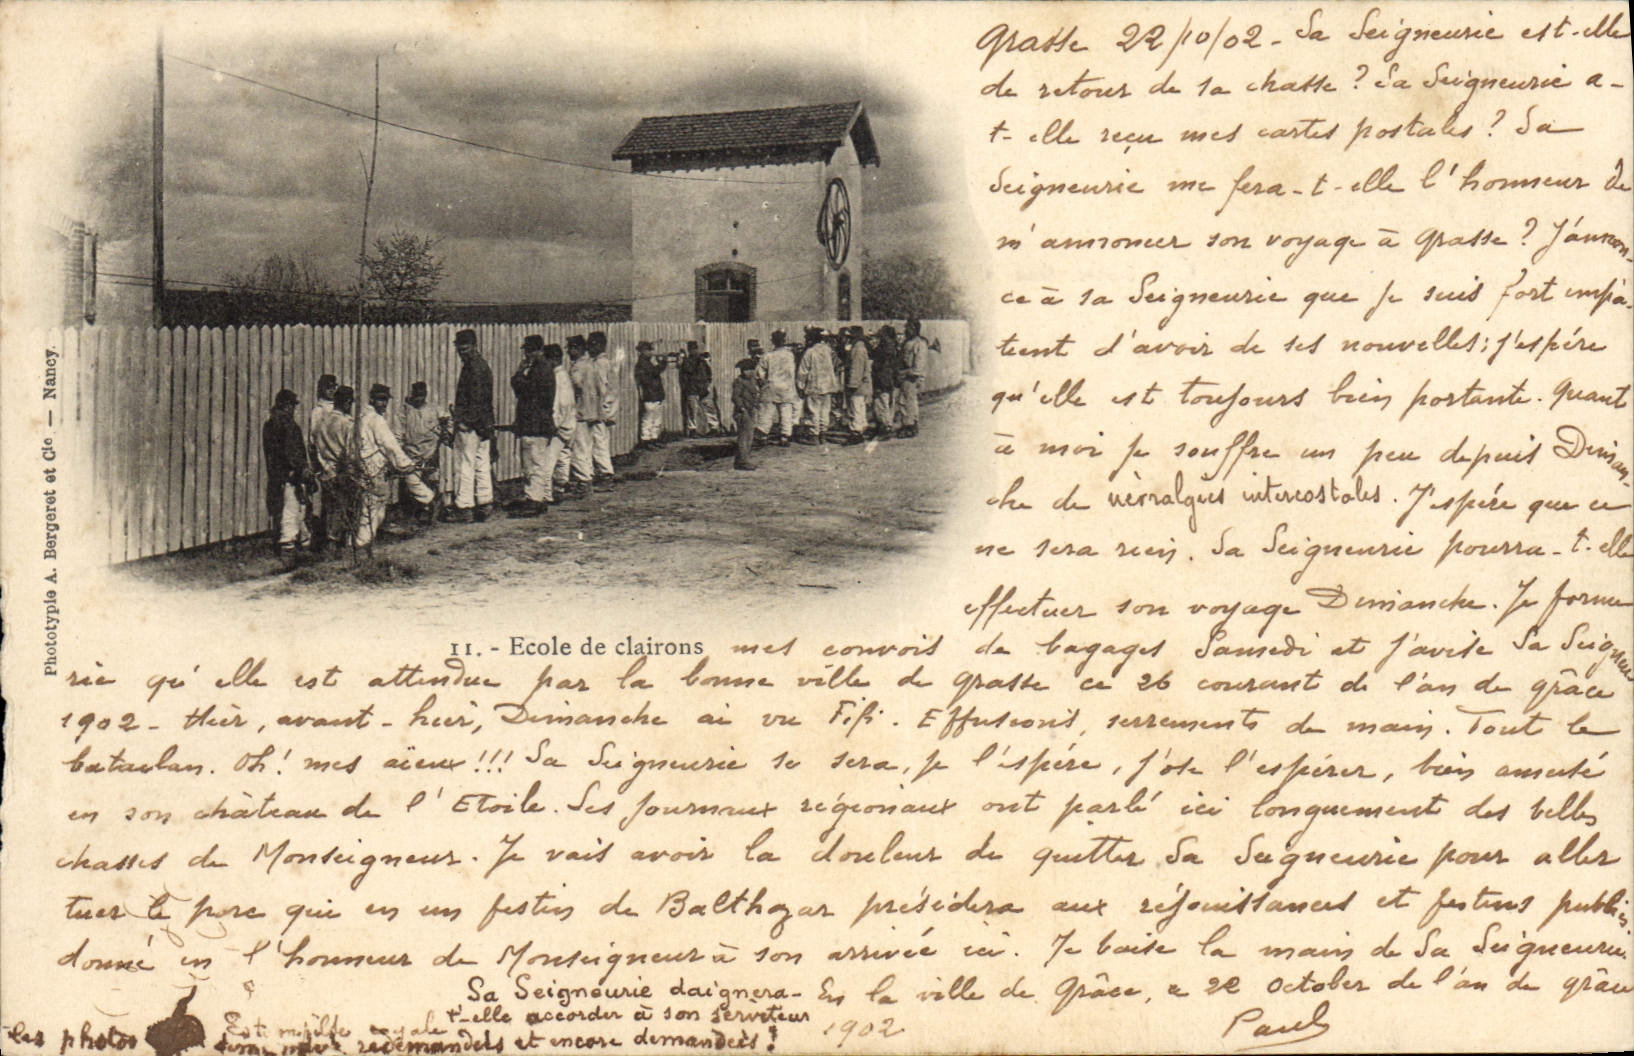 Grasse 22/10/02 - Sa Seigneurie est-elle
de retour de sa chasse ? Sa Seigneurie a-
t-elle reçu mes cartes postales ? Sa
Seigneurie me fera-t-elle l'honneur de
m'annoncer son voyage à Grasse ? J'annon-
ce à sa Seigneurie que je suis fort impa-
tient d'avoir de ses nouvelles ; j'espére
qu'elle est toujours bien portante. Quant
à moi je souffre un peu depuis Diman-
che de nèvralgies intercostales. J'espére que ce
ne sera rien. Sa Seigneurie pourra-t-elle
effectuer son voyage Dimanche. Je forme
11. - Ecole de clairons mes convois de bagages Samedi et j'avise Sa Seigneu
rie qu'elle est attendue par la bonne ville de Grasse ce 26 courant de l'an de grâce
1902 - Hièr, avant-hièr, Dimanche ai vu Fifi. Effusions, serrements de main. Tout le
bataclan. Oh ! mes aïeux !!! Sa Seigneurie se sera, je l'éspére, j'ose l'espérer, bien amusé
en son château de l'Etoile. Les journaux régionaux ont parlé ici longuement des belles
chasses de Monseigneur. Je vais avoir la douleur de quitter Sa Seigneurie pour aller
tuer le porc qui en un festin de Balthazar présidera aux réjouissances et festins publics
donné en l'honneur de Monseigneur à son arrivée ici. Je baise la main de Sa Seigneurie.
En la ville de Grâce, ce 22 October de l'an de grâce
1902
Paul
Sa Seigneurie daignera-
t'-elle accorder à son serviteur
les photos
redemandées et encore demandées !
Phototypie A. Bergeret et Cie - Nancy